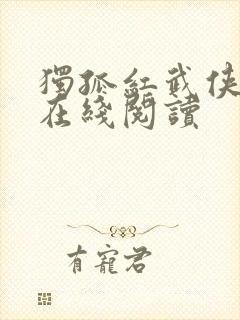 獨孤紅武俠
在綫閱讀
有寵君